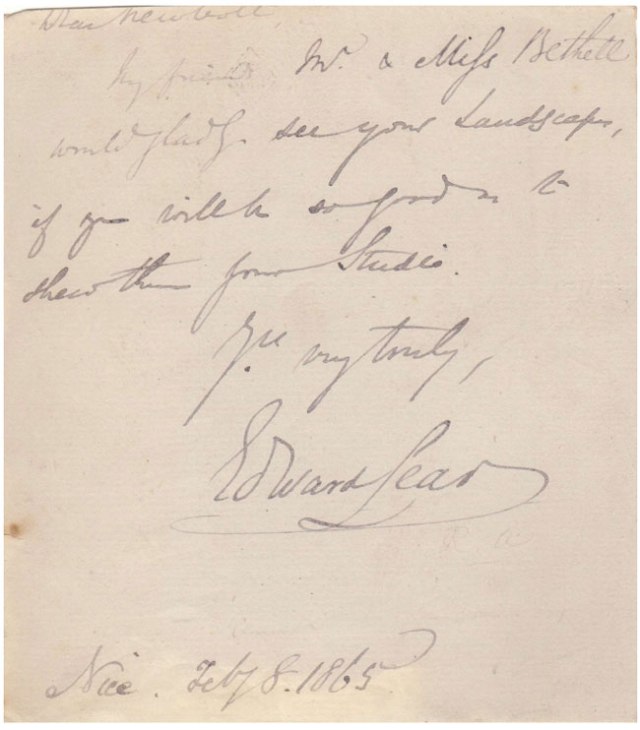 Dear Newton,
My friends Mr. & Miss Bethell
would gladly see your Landscapes,
if you will be so good as to
shew them your Studio.
Yrs. very truly,
Edward Lear
Nice. Feby 8. 1865